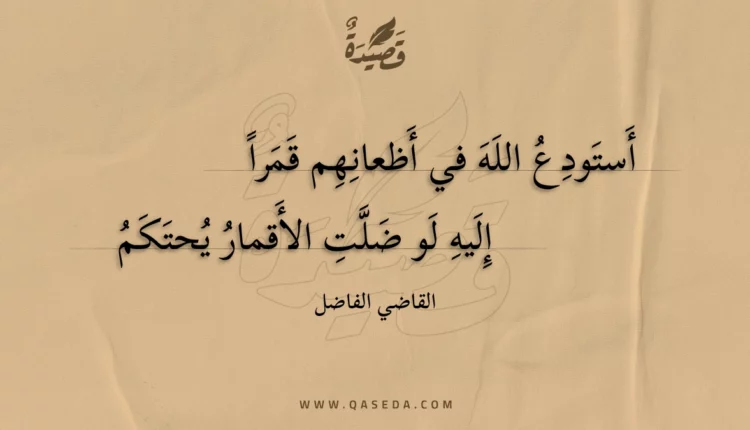 قَصِيدَةٌ
أَستَودِعُ اللَهَ في أَظعانِهِم قَمَراً
إِلَيهِ لَو ضَلَّتِ الأَقمارُ يُحتَكَمُ
القاضي الفاضل
WWW.QASEDA.COM